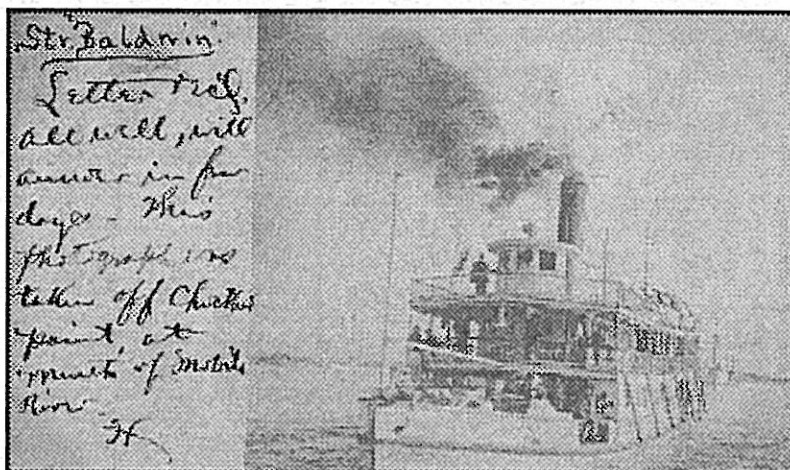 Str. "Baldwin"
Letter rec'd.
all well, will
answer in few
days - This
photograph was
taken off
point at
mouth of Mobile
River
H